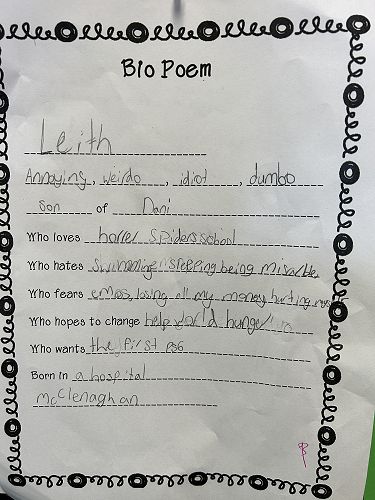 Bio Poem
Leith
Annoying, weirdo, idiot, dumbo
son of Dani
Who loves horrer spiders school
Who hates swimming sleeping being misarble
Who fears emos, losing all my money hurting
Who hopes to change help world hunger
Who wants the first
Born in a hospital
McClenaghan